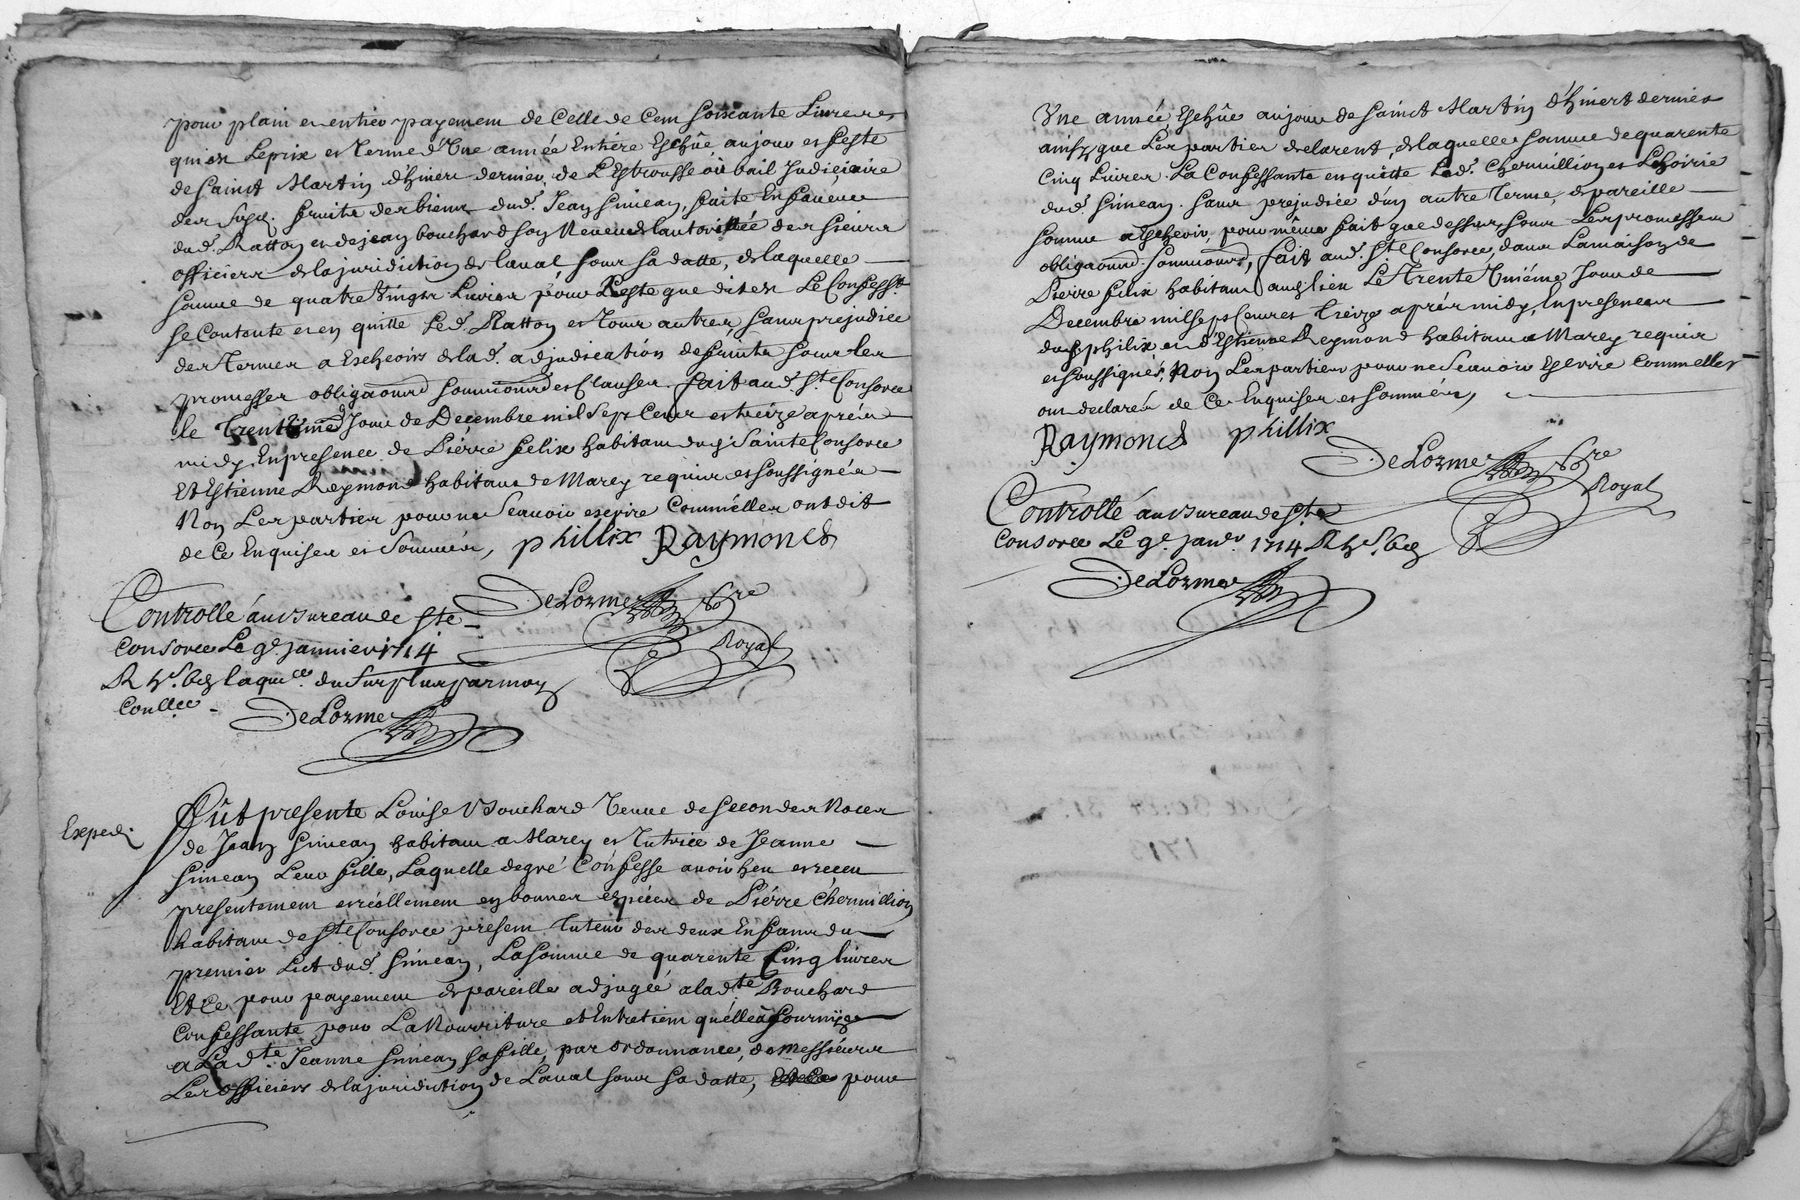 pour plain et entier payement de Celle de Cent soixante Livres
qui est Le prix et Terme d'Une année Entiere Escheue au jour et feste
de Sainct Martin d'hivert dernier, de L'Estrousse où bail Judiciaire
des fruits des biens dud. Jean Simean, faite En faveur
dud. Ratton et de jean bouchard son Neveu de lautorité des sieurs
officiers de la juridiction de laval sous sa datte, de laquelle
somme de quatre Vingts Livres pour Reste que dit est Le Confesst.
se Contente et en quitte Led. Ratton et tous autres, sans prejudice
des Termes a Escheoirs de lad. adjudication de fruits sous les
promesses obligaons soumissons et Clauses. fait aud. Ste Consorce
le Jour de Decembre mil Sept Cents et treize aprés
midy, En presence de Piérre felix habitant dud. Sainte Consorce
Et Estienne Reymond habitant de Marcy requis et soussignés
Non Les parties pour ne Scavoir escrire Comme Elles ont dit
de Ce Enquises et Sommées,
phillix Raymond
DeLorme Nore
Royal
Controllé au Bureau de Ste
Consorce Le 9e. janvier 1714
R la quice. du Surplus par moy
DeLorme
Exped.
Fût presente Louise Bouchard Veuve de secondes Noces
de Jean Simean habitant a Marcy et Tutrice de Jeanne
Simean Leur fille, Laquelle de gré Confesse avoir heu et receu
presentement et réellement en bonnes espéces de Piérre Chermillion
habitant de Ste. Consorce present Tuteur des deux Enfans du
premier Lict dud. Simean, La Somme de quarente Cinq livres
Et Ce pour payement de pareille adjugée a lad.te Bouchard
Confessante pour La Nourriture et Entretiem qu'elle à fourny
a Lad.te Jeanne Simean sa fille, par ordonnance, de Messieurs
Les officiers de la juridiction de Laval sous sa datte, pour
Une année, Escheue au jour de Sainct Martin d'hivert dernier
ainsy que Les parties declarent, de laquelle somme de quarente
Cinq Livres La Confessante en quitte Led. Chermillion et L'hoirie
dud. Simean. sans prejudice d'un autre Terme, de pareille
somme a Escheoir, pour même fait que dessus, sous Les promesses
obligaons. soumissons, fait aud. Ste. Consorce, dans La maison de
Pierre felix habitant aud. lieu Le Trente Uniéme Jour de
Decembre mil Sept Cents et Treize aprés midy, En presence
dud. philix et d'Estienne Reymond habitant a Marcy requis
et soussignés, Non Les parties pour ne Scavoir Escrire Comme Elles
ont declarés de Ce Enquises et sommées,
Raymond phillix
DeLorme Nore
Royal
Controllé au Bureau de Ste
Consorce Le 9e. janer. 1714 R
DeLorme